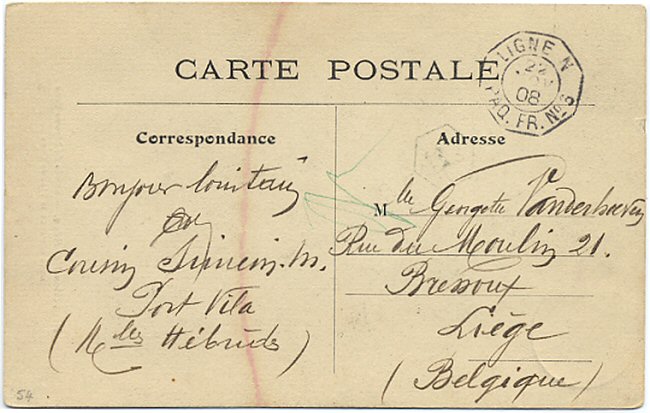 CARTE POSTALE
LIGNE N
22
08
PAQ. FR. Nº 6
Correspondance
Adresse
Bonjour lointain
du
Cousin Siméon. M.
Port Vila
(Nlles Hébrides)
Mlle Georgette Vanderhoeven
Rue du Moulin 21.
Bressoux
Liège
(Belgique)
54